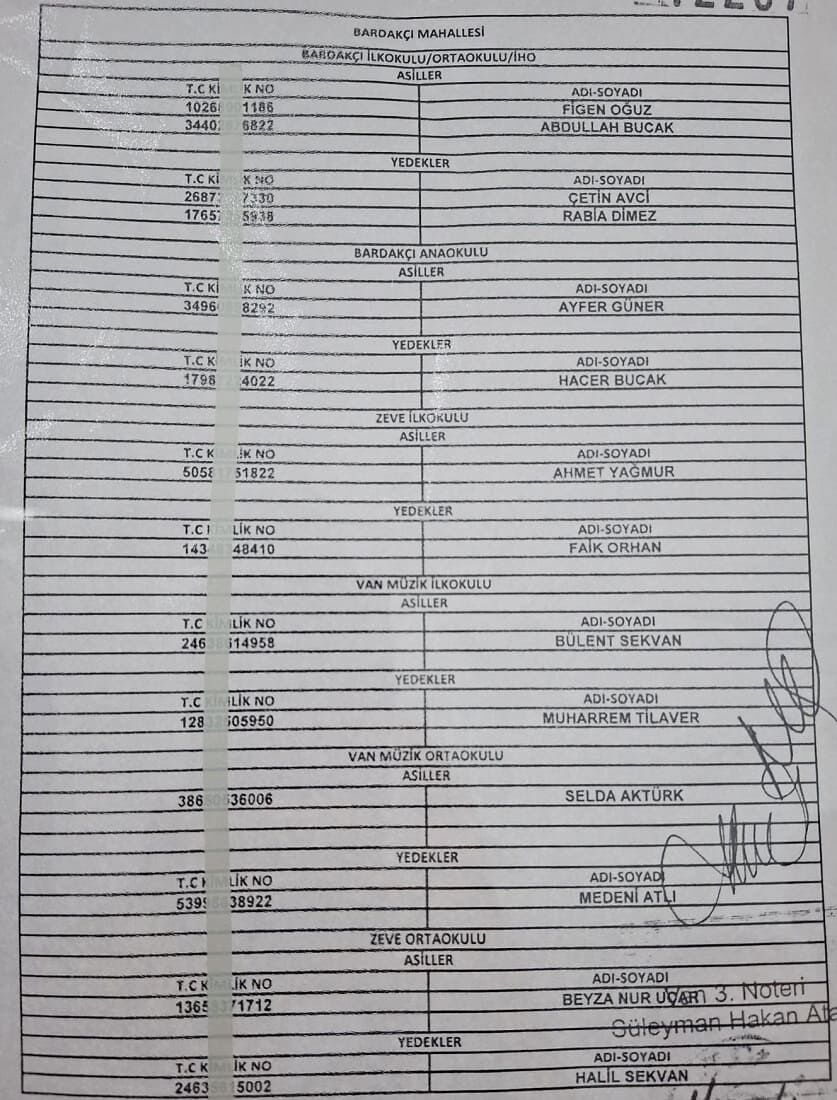 BARDAKÇI MAHALLESİ
BARDAKÇI İLKOKULU/ORTAOKULU/İHO
ASİLLER
T.C Kİ K NO ADI-SOYADI
1026 1186 FİGEN OĞUZ
3440 6822 ABDULLAH BUCAK
YEDEKLER
T.C Kİ K NO ADI-SOYADI
2687 7330 ÇETİN AVCİ
1765 5938 RABİA DİMEZ
BARDAKÇI ANAOKULU
ASİLLER
T.C Kİ K NO ADI-SOYADI
3496 8292 AYFER GÜNER
YEDEKLER
T.C K İK NO ADI-SOYADI
1798 4022 HACER BUCAK
ZEVE İLKOKULU
ASİLLER
T.C K İK NO ADI-SOYADI
5058 51822 AHMET YAĞMUR
YEDEKLER
T.C LİK NO ADI-SOYADI
143 48410 FAİK ORHAN
VAN MÜZİK İLKOKULU
ASİLLER
T.C LİK NO ADI-SOYADI
246 14958 BÜLENT SEKVAN
YEDEKLER
T.C LİK NO ADI-SOYADI
128 05950 MUHARREM TİLAVER
VAN MÜZİK ORTAOKULU
ASİLLER
386 36006 SELDA AKTÜRK
YEDEKLER
T.C K LİK NO ADI-SOYADI
539 38922 MEDENİ ATLI
ZEVE ORTAOKULU
ASİLLER
T.C K LİK NO ADI-SOYADI
1365 71712 BEYZA NUR UÇAR
3. Noteri
Süleyman Hakan
YEDEKLER
T.C K LİK NO ADI-SOYADI
2463 5002 HALİL SEKVAN